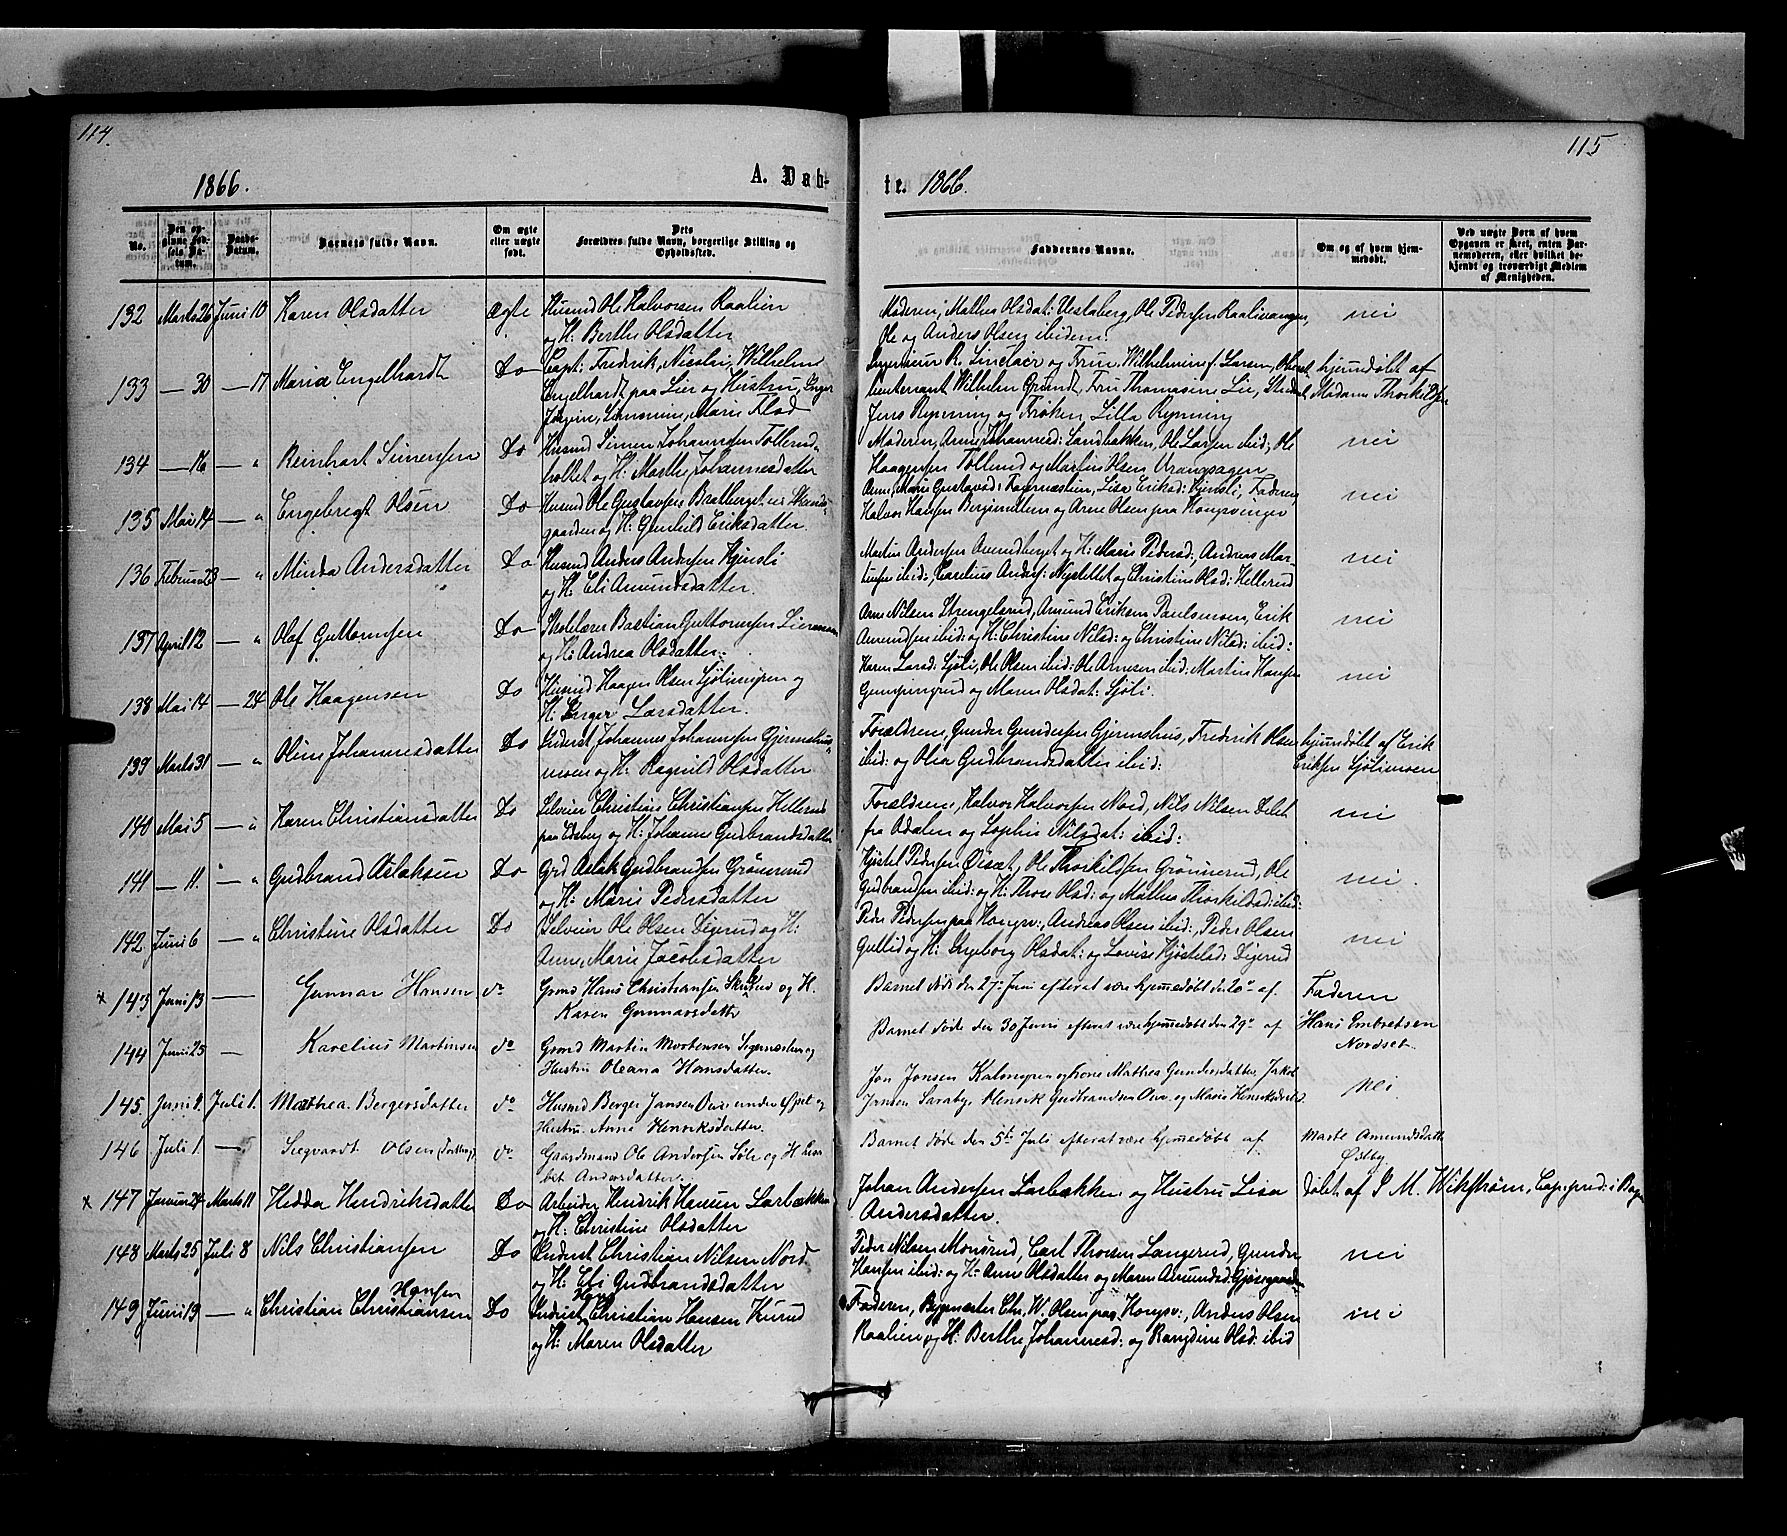 114.
115
1866.
A. Døb-
te. 1866.
No.
Den op-
givne Fød-
sels Da-
tum.
Daabs-
Datum.
Barnets fulde Navn.
Om ægte
eller uægte
født.
Dets
Forældres fulde Navn, borgerlige Stilling og
Opholdssted.
Faddernes Navne.
Om og af hvem hjem-
medøbt.
Ved uægte Børn af hvem
Opgaven er skeet, enten Bar-
nemoderen, eller hvilket be-
kjendt og troværdigt Medlem
af Menigheden.
132 Marts 26 Juni 10 Karen Olsdatter ægte Husmd Ole Halvorsen Raalien
og H. Berthe Olsdatter
Moderen, Mathea Olsdat: Ole Pedersen
Ole og Anders Olsen ibidem.
nei
133 — 30 — 17 Maria Engelhardt Do Capt: Fredrik Nicolai Wilhelm
Engelhardt paa Lier og Hustru, Inger
Marie Flod
Ingenieur R. Sinclair og Frue, Wilhelmine f. Larsen,
lieutenant Wilhelm Fru Thomasine Lie, Student
Jens Rynning og Frøken Lilla Rynning
hjemdøbt af
Madame Thorkildsen
134 — 16 — " Reinhart Simensen Do Husmd Simen Johannesen Tollerud-
holtet og H: Marthe Johannesdatter
Moderen, Anne Johannesd: Sandbakken, Ole Larsen ibid; Ole
Haagensen Tollerud og Martin Olsen
nei
135 Mai 14 — " Engebregt Olsen Do Husmd Ole Gustavsen Bratberget
gaarden og H: Gunhild Eriksdatter.
Anne Marie Gustavsd: Lisa Eriksd: Kjensli, Faderen,
Halvor Hansen og Arne Olsen paa Kongsvinger
nei
136 Februar 23 — " Minda Andersdatter Do Husmd Anders Andersen Kjensli
og H: Eli Amundsdatter.
Martin Andersen Amundberget og H: Marie Pedersd:, Andreas Mar-
tinsen ibid:, og Christine Olsd: Hellerud
nei
137 April 12 — " Olaf Guttormsen Do Skolelærer Bastian Guttormsen Liermoen
og H: Andrea Olsdatter.
Arne Nilsen Strengelsrud, Amund Eriksen Erik
Amundsen ibid: og H: Christine Nilsd: og Christine Nilsd: ibid:
nei
138 Mai 14 — 24 Ole Haagensen Do Husmd Haagen Olsen Sjøliengen og
H: Inger Larsdatter.
Karen Larsd: Sjøli, Ole Olsen ibid: Ole Arnesen ibid: Martin Hansen
og Maren Olsdat: Sjøli.
nei
139 Marts 31 — " Oline Johannesdatter Do Inderst Johannes Johannesen Gjermshus-
moen og H: Ragnild Olsdatter
Forældrene, Gunder Gundersen Gjermshus, Fredrik Olsen
ibid: og Olea Gudbrandsdatter ibid:
hjemdøbt af Erik
Eriksen Sjølimoen
140 Mai 5 — " Karen Christiansdatter Do Selveier Christian Christiansen Hellerud
paa Edsberg og H: Johanne Gudbrandsdatter
Forældrene, Halvor Halvorsen Nord, Nils Nilsen
fra Adalen og Sophie Nilsdat: ibid:
nei
141 — 11. — " Gudbrand Aslaksen Do Grd Aslak Gudbrandsen Grønnerud
og H: Marie Pedersdatter
Kjøstel Pedersen Øiset, Ole Thorkildsen Grønnerud, Ole
Gudbrandsen ibid: og H: Thore Olsd: og Mathea Thorkildsd: ibid:
nei.
142 Juni 6 — " Christine Olsdatter Do Selveier Ole Olsen Digerud og H:
Anne Marie Jacobsdatter
Peder Pedersen paa Kongsv:, Andreas Olsen ibid:, Peder Olsen
Gullid og H: Ingeborg Olsdat: og Lovise Kjøstelsd: Digerud
nei
× 143 Juni 13 — Gunnar Hansen do Grmd Hans Christiansen og H.
Karen Gunnarsdatter
Barnet døde den 27de Juni efterat være hjemmedøbt den 20de af.
Faderen
144 Juni 25 — Karelius Martinsen do Grmd Martin Mortensen og
Hustru Oleana Hansdatter.
Barnet døde den 30 Juni efterat være hjemmedøbt den 29de af
Hans Embretsen
Nordset.
145. Juni 9. Juli 1. Mathea Bergersdatter do Husmd Berger Jansen under Øiset og
Hustru Anne Henriksdatter.
Jon Jonsen Kalongen og Kone Mathea Gundersdatter, Jakob
Jensen Henrik Gudbrandsen og Marie Henriksdatter
nei
146 Juli 1. — Siegvardt Olsen do Gaardmand Ole Andersen og H. Lisa-
bet Andersdatter.
Barnet døde den 5te Juli efterat være hjemmedøbt af
Marte Amundsdatter
Østby
× 147 Januar 24 Marts 11 Hedda Hendriksdatter Do Arbeider Hendrik Hansen Sarbækken
og H: Christine Olsdatter
Johan Andersen Sarbækken og Hustru Lisa
Andersdatter.
døbt af S M. Wikstrøm,
148 Marts 25 Juli 8 Nils Christiansen Do Inderst Christian Nilsen Nord
og H: Eli Gudbrandsdatter
Peder Nilsen Monsrud, Carl Thoresen Langerud, Gunder
Hansen ibid: og H: Anne Olsdatter og Maren Amundsd:
nei
149 Juni 19 — " Christian Christiansen Hansen Do Inderst Christian Hansen Kurud
og H: Maren Olsdatter
Faderen, Bygmester Chr. W. Olsen paa Kongsv:, Anders Olsen
Raalien og H: Berthe Johannesd: og Rangdine Olsd: ibid
nei